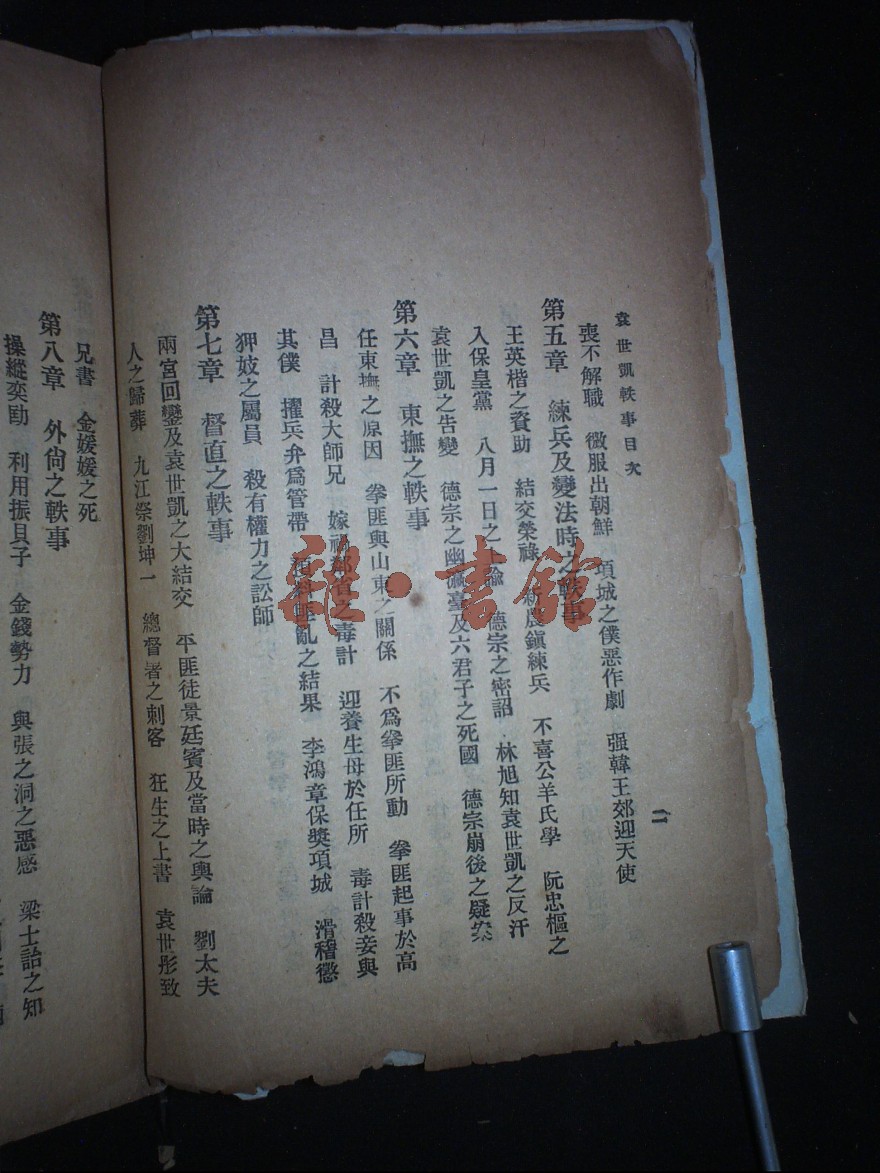 袁世凱軼事目次
二
喪不解職　微服出朝鮮　項城之僕惡作劇　强韓王郊迎天使
第五章　練兵及變法時之軼事
王英楷之資助　結交榮祿　新農鎮練兵　不喜公羊氏學　阮忠樞之
入保皇黨　八月一日之上諭　德宗之密詔　林旭知袁世凱之反汗
袁世凱之告變　德宗之幽瀛臺及六君子之死國　德宗崩後之疑案
第六章　東撫之軼事
任東撫之原因　拳匪與山東之關係　不爲拳匪所動　拳匪起事於高
昌　計殺大師兄　嫁禍鄰省之毒計　迎養生母於任所　毒計殺妾與
其僕　擢兵弁爲管帶　預料匪亂之結果　李鴻章保獎項城　滑稽懲
狎妓之屬員　殺有權力之訟師
第七章　督直之軼事
兩宮回鑾及袁世凱之大結交　平匪徒景廷賓及當時之輿論　劉太夫
人之歸葬　九江祭劉坤一　總督署之刺客　狂生之上書　袁世彤致
兄書　金媛媛之死
第八章　外尙之軼事
操縱奕劻　利用振貝子　金錢勢力　與張之洞之惡感　梁士詒之知
雜·書館